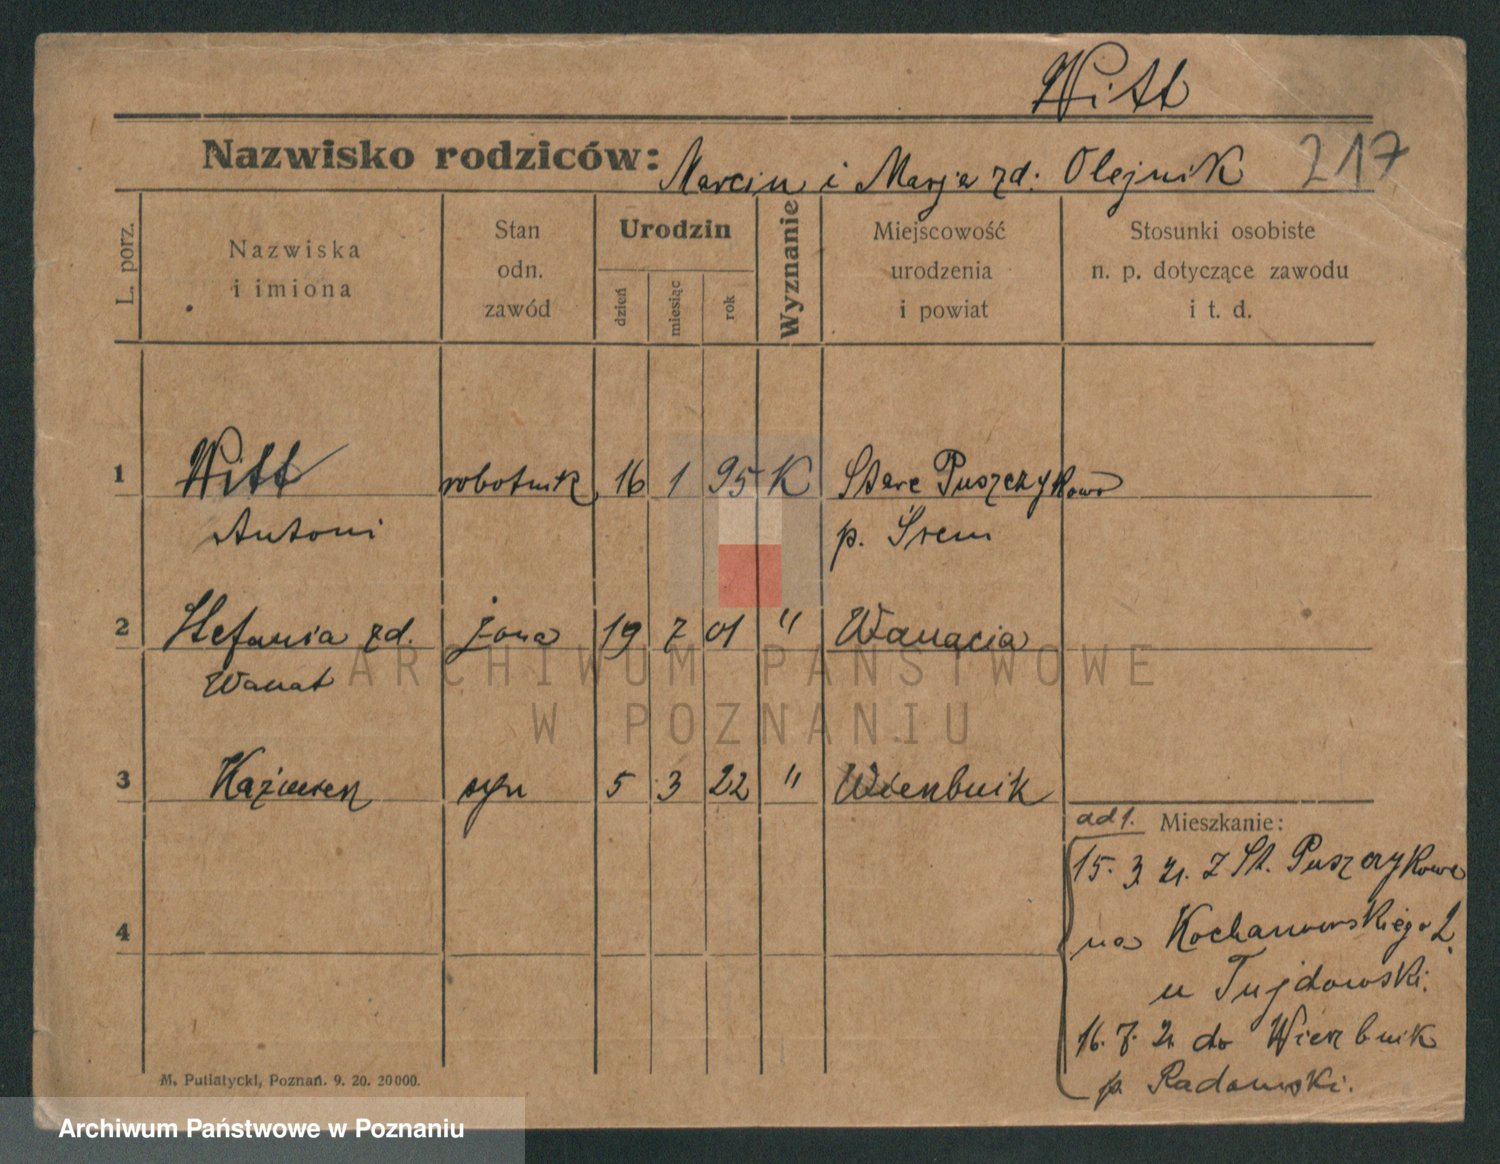 Witt
217
Nazwisko rodziców: Marcin i Marja zd. Olejnik
L. porz.
Nazwiska
i imiona
Stan
odn.
zawód
Urodzin
dzień
miesiąc
rok
Wyznanie
Miejscowość
urodzenia
i powiat
Stosunki osobiste
n. p. dotyczące zawodu
i t. d.
1 Witt robotnik 16 1 95 K Stare Puszczykowo
Antoni p. Śrem
2 Stefania zd. żona 19 7 01 "
Wanat
3 Kaźmierz syn 5 3 22 " Wierzbnik
ad 1. Mieszkanie:
15. 3. 21. z St. Puszczykowa
4
na Kochanowskiego 2.
u Tujdowski.
16. 7. 21 do Wierzbnik
p. Radomski.
M. Putiatycki, Poznań. 9. 20. 20000.
ARCHIWUM PAŃSTWOWE
W POZNANIU
Archiwum Państwowe w Poznaniu